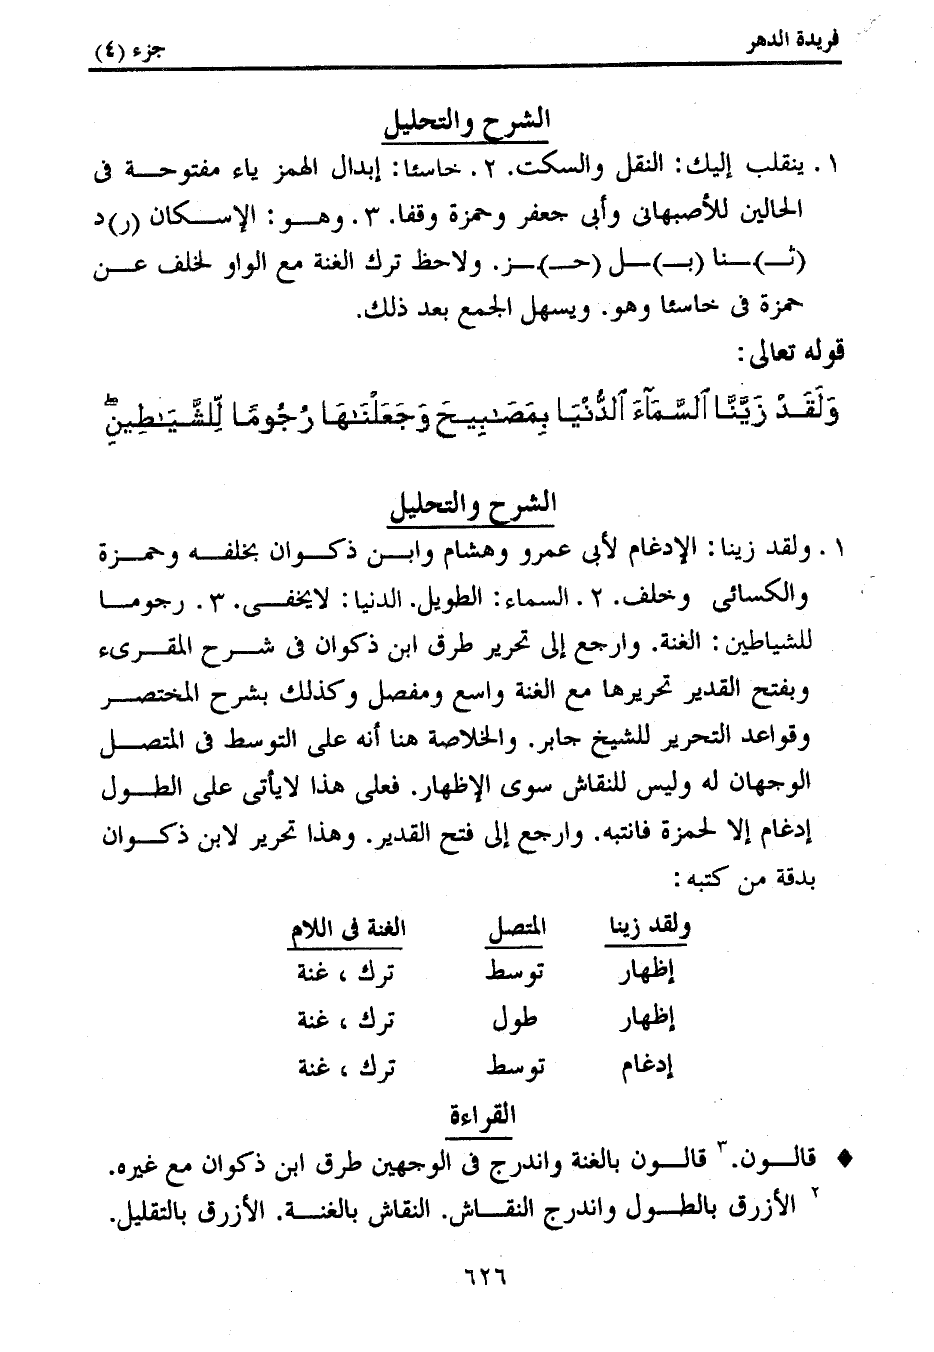 فريدة الدهر
جزء (٤)
الشرح والتحليل
١. ينقلب إليك: النقل والسكت. ٢. خاسئا: إبدال الهمز ياء مفتوحـــة فى
الحالين للأصبهانى وأبى جعفر وحمزة وقفا. ٣. وهــو: الإســكان (ر)د
(ثــ)ــنا (بــ)ــل (حــ)ــز. ولاحظ ترك الغنة مع الواو لخلف عــن
حمزة فى خاسئا وهو. ويسهل الجمع بعد ذلك.
قوله تعالى:
وَلَقَدْ زَيَّنَّا ٱلسَّمَآءَ ٱلدُّنْيَا بِمَصَـٰبِيحَ وَجَعَلْنَـٰهَا رُجُومًا لِّلشَّيَـٰطِينِ ۖ
الشرح والتحليل
١. ولقد زينا: الإدغام لأبى عمرو وهشام وابــن ذكــوان بخلفــه وحمــزة
والكسائى وخلف. ٢. السماء: الطويل. الدنيا: لايخفــى. ٣. رجومــا
للشياطين: الغنة. وارجع إلى تحرير طرق ابن ذكوان فى شــرح المقرىء
وبفتح القدير تحريرها مع الغنة واسع ومفصل وكذلك بشرح المختصــر
وقواعد التحرير للشيخ جابر. والخلاصة هنا أنه على التوسط فى المتصــل
الوجهان له وليس للنقاش سوى الإظهار. فعلى هذا لايأتى على الطــول
إدغام إلا لحمزة فانتبه. وارجع إلى فتح القدير. وهذا تحرير لابن ذكــوان
بدقة من كتبه:
ولقد زينا المتصل الغنة فى اللام
إظهار توسط ترك ، غنة
إظهار طول ترك ، غنة
إدغام توسط ترك ، غنة
القراءة
♦ قالــون. ٣ قالــون بالغنة واندرج فى الوجهين طرق ابن ذكوان مع غيره.
٢ الأزرق بالطــول واندرج النقــاش. النقاش بالغنــة. الأزرق بالتقليل.
٦٢٦